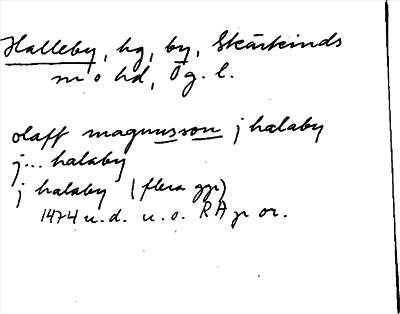 Halleby, hg, by, Skärkinds
sn o hd, Ög. l.
olaff magnusson j halaby
j... halaby
j halaby (flera ggr)
1474 u.d. u.o. RAp or.